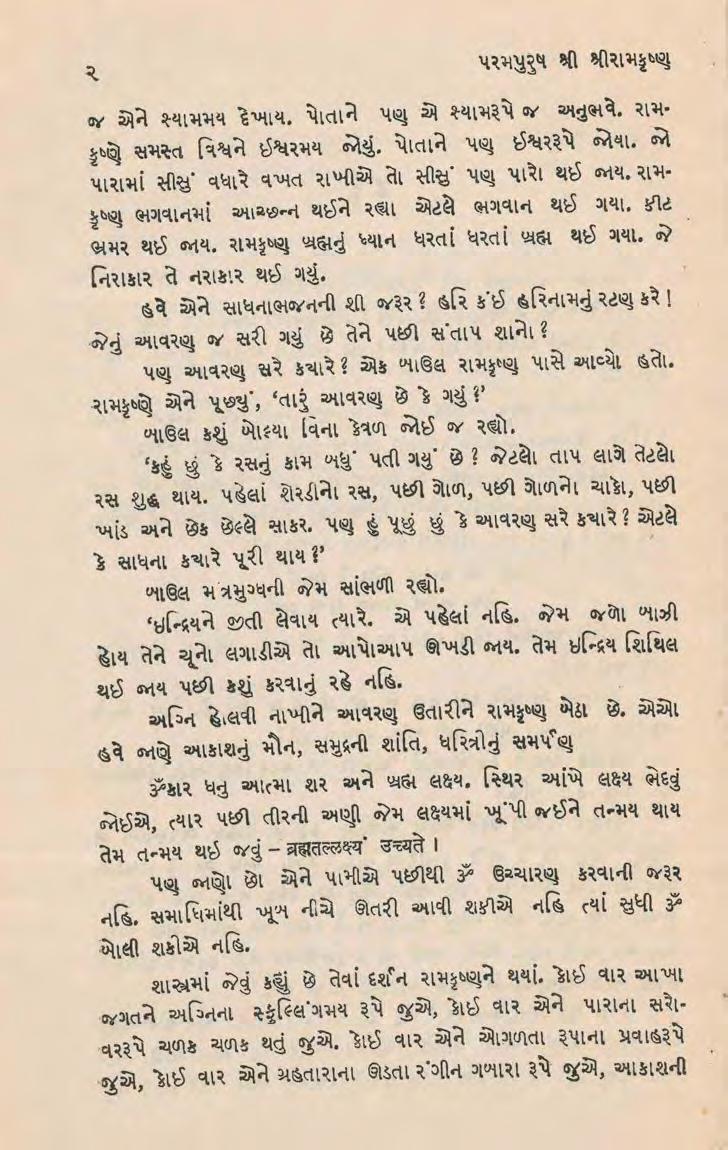 ૨
પરમપુરુષ શ્રી શ્રીરામકૃષ્ણ
જ એને શ્યામમય દેખાય. પોતાને પણ એ શ્યામરૂપે જ અનુભવે. રામ-
કૃષ્ણે સમસ્ત વિશ્વને ઈશ્વરમય જોયું. પોતાને પણ ઈશ્વરરૂપે જોયા. જો
પારામાં સીસું વધારે વખત રાખીએ તો સીસું પણ પારો થઈ જાય. રામ-
કૃષ્ણ ભગવાનમાં આચ્છન્ન થઈને રહ્યા એટલે ભગવાન થઈ ગયા. કીટ
ભ્રમર થઈ જાય. રામકૃષ્ણ બ્રહ્મનું ધ્યાન ધરતાં ધરતાં બ્રહ્મ થઈ ગયા. જે
નિરાકાર તે નરાકાર થઈ ગયું.
હવે એને સાધનાભજનની શી જરૂર ? હરિ કંઈ હરિનામનું રટણ કરે !
જેનું આવરણ જ સરી ગયું છે તેને પછી સંતાપ શાનો ?
પણ આવરણ સરે ક્યારે ? એક બાઉલ રામકૃષ્ણ પાસે આવ્યો હતો.
રામકૃષ્ણે એને પૂછ્યું, ‘તારું આવરણ છે કે ગયું ?’
બાઉલ કશું બોલ્યા વિના કેવળ જોઈ જ રહ્યો.
‘કહું છું કે રસનું કામ બધું પતી ગયું છે ? જેટલો તાપ લાગે તેટલો
રસ શુદ્ધ થાય. પહેલાં શેરડીનો રસ, પછી ગોળ, પછી ગોળનો ચાકો, પછી
ખાંડ અને છેક છેલ્લે સાકર. પણ હું પૂછું છું કે આવરણ સરે ક્યારે ? એટલે
કે સાધના ક્યારે પૂરી થાય ?’
બાઉલ મંત્રમુગ્ધની જેમ સાંભળી રહ્યો.
‘ઇન્દ્રિયને જીતી લેવાય ત્યારે. એ પહેલાં નહિ. જેમ જળો બાઝી
હોય તેને ચૂનો લગાડીએ તો આપોઆપ ઊખડી જાય. તેમ ઇન્દ્રિય શિથિલ
થઈ જાય પછી કશું કરવાનું રહે નહિ.
અગ્નિ હોલવી નાખીને આવરણ ઉતારીને રામકૃષ્ણ બેઠા છે. એઓ
હવે જાણે આકાશનું મૌન, સમુદ્રની શાંતિ, ધરિત્રીનું સમર્પણ
ૐકાર ધનુ આત્મા શર અને બ્રહ્મ લક્ષ્ય. સ્થિર આંખે લક્ષ્ય ભેદવું
જોઈએ, ત્યાર પછી તીરની અણી જેમ લક્ષ્યમાં ખૂંપી જઈને તન્મય થાય
તેમ તન્મય થઈ જવું – ब्रह्मतल्लक्ष्यं उच्यते ।
પણ જાણો છો એને પામીએ પછીથી ૐ ઉચ્ચારણ કરવાની જરૂર
નહિ. સમાધિમાંથી ખૂબ નીચે ઊતરી આવી શકીએ નહિ ત્યાં સુધી ૐ
બોલી શકીએ નહિ.
શાસ્ત્રમાં જેવું કહ્યું છે તેવાં દર્શન રામકૃષ્ણને થયાં. કોઈ વાર આખા
જગતને અગ્નિના સ્ફુલ્લિંગમય રૂપે જુએ, કોઈ વાર એને પારાના સરો-
વરરૂપે ચળક ચળક થતું જુએ. કોઈ વાર એને ઓગળતા રૂપાના પ્રવાહરૂપે
જુએ, કોઈ વાર એને ગ્રહતારાના ઊડતા રંગીન ગબારા રૂપે જુએ, આકાશની